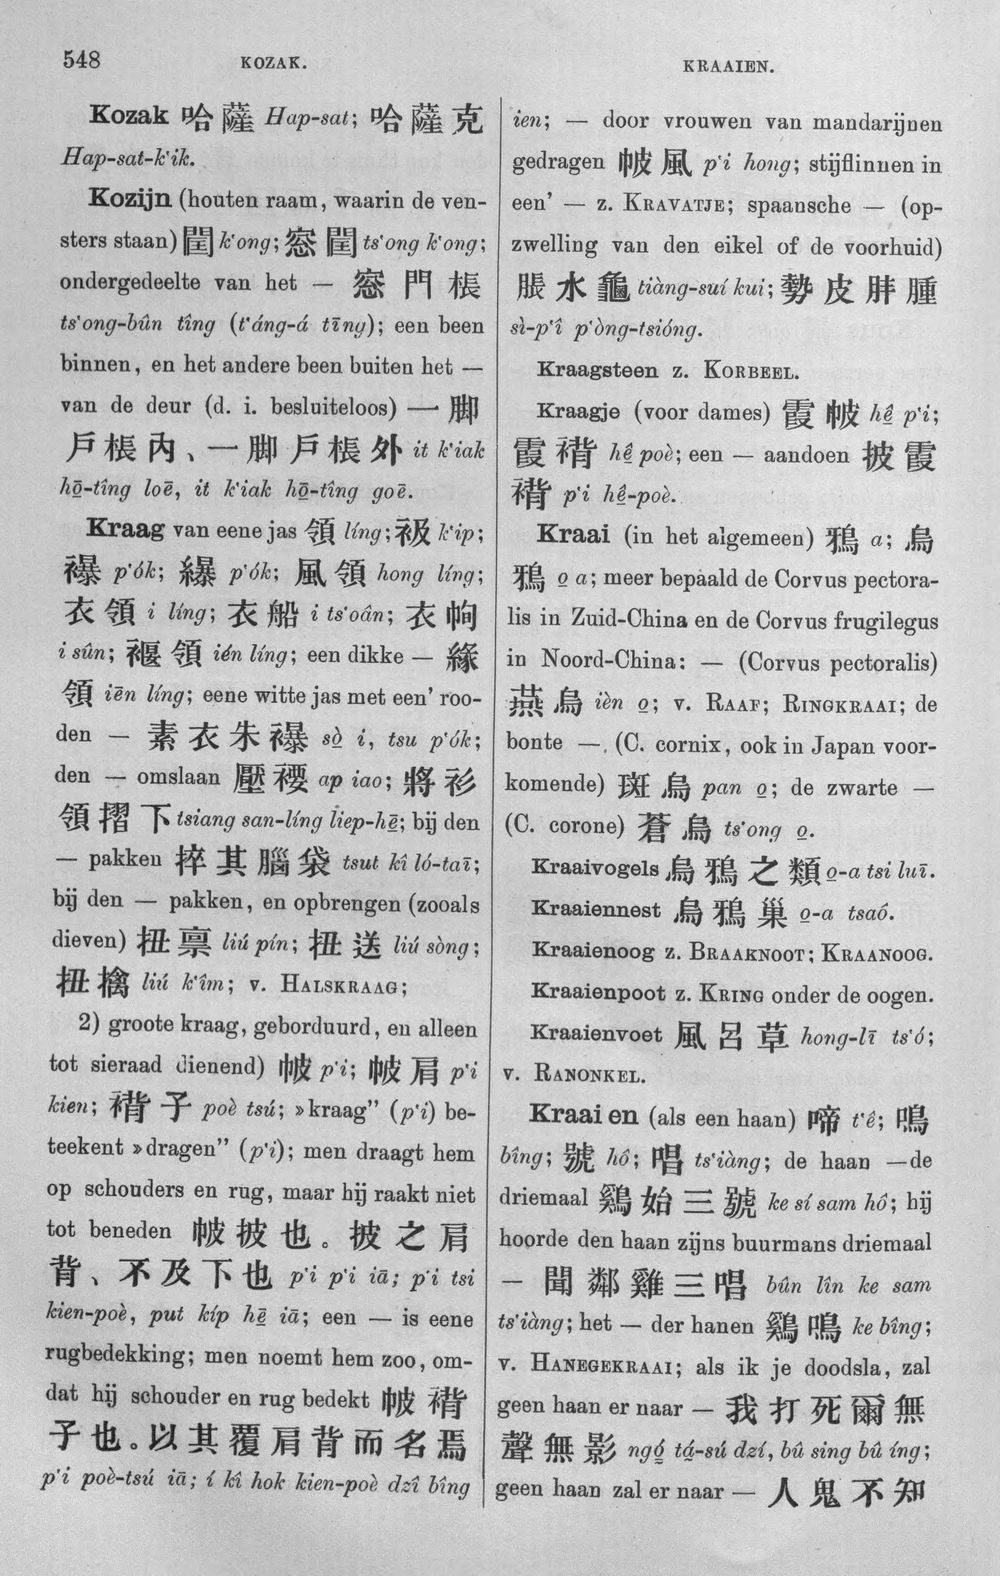 548
KOZAK.
KRAAIEN.
Kozak 哈薩 Hap-sat; 哈薩克
Hap-sat-k‘ik.
Kozijn (houten raam, waarin de ven-
sters staan) 閨 k‘ong; 窓閨 ts‘ong k‘ong;
ondergedeelte van het — 窓門棖
ts‘ong-bûn tîng (t‘áng-á tīng); een been
binnen, en het andere been buiten het —
van de deur (d. i. besluiteloos) 一脚
戸棖內、一脚戸棖外 it k‘iak
hō-tîng loē, it k‘iak hō-tîng goē.
Kraag van eene jas 領 líng; 衱 k‘ip;
襮 p‘ók; 纀 p‘ók; 風領 hong líng;
衣領 i líng; 衣船 i ts‘oân; 衣㡒
i sûn; 褗領 ién líng; een dikke — 緣
領 iēn líng; eene witte jas met een’ roo-
den — 素衣朱襮 sò i, tsu p‘ók;
den — omslaan 壓褑 ap iao; 將衫
領摺下 tsiang san-líng liep-hē; bij den
— pakken 捽其腦袋 tsut kî ló-taī;
bij den — pakken, en opbrengen (zooals
dieven) 扭稟 liú pín; 扭送 liú sòng;
扭擒 liú k‘îm; v. HALSKRAAG;
2) groote kraag, geborduurd, en alleen
tot sieraad dienend) 帔 p‘i; 帔肩 p‘i
kien; 褙子 poè tsú; »kraag” (p‘i) be-
teekent »dragen” (p‘i); men draagt hem
op schouders en rug, maar hij raakt niet
tot beneden 帔披也。披之肩
背、不及下也 p‘i p‘i iā; p‘i tsi
kien-poè, put kíp hē iā; een — is eene
rugbedekking; men noemt hem zoo, om-
dat hij schouder en rug bedekt 帔褙
子也。以其覆肩背而名焉
p‘i poè-tsú iā; í kî hok kien-poè dzî bîng
ien; — door vrouwen van mandarijnen
gedragen 帔風 p‘i hong; stijflinnen in
een’ — z. KRAVATJE; spaansche — (op-
zwelling van den eikel of de voorhuid)
脹水龜 tiàng-suí kui; 勢皮胖腫
sì-p‘î p‘òng-tsióng.
Kraagsteen z. KORBEEL.
Kraagje (voor dames) 霞帔 hê p‘i;
霞褙 hê poè; een — aandoen 披霞
褙 p‘i hê-poè.
Kraai (in het algemeen) 鴉 a; 烏
鴉 o a; meer bepaald de Corvus pectora-
lis in Zuid-China en de Corvus frugilegus
in Noord-China: — (Corvus pectoralis)
燕烏 ièn o; v. RAAF; RINGKRAAI; de
bonte —. (C. cornix, ook in Japan voor-
komende) 斑烏 pan o; de zwarte —
(C. corone) 蒼烏 ts‘ong o.
Kraaivogels 烏鴉之類 o-a tsi luī.
Kraaiennest 烏鴉巢 o-a tsaó.
Kraaienoog z. BRAAKNOOT; KRAANOOG.
Kraaienpoot z. KRING onder de oogen.
Kraaienvoet 風呂草 hong-lī ts‘ó;
v. RANONKEL.
Kraaien (als een haan) 啼 t‘ê; 鳴
bîng; 號 hô; 唱 ts‘iàng; de haan —de
driemaal 鷄始三號 ke sí sam hô; hij
hoorde den haan zijns buurmans driemaal
— 聞鄰雞三唱 bûn lîn ke sam
ts‘iàng; het — der hanen 鷄鳴 ke bîng;
v. HANEGEKRAAI; als ik je doodsla, zal
geen haan er naar — 我打死爾無
聲無影 ngó tá-sú dzí, bû sing bû íng;
geen haan zal er naar — 人鬼不知